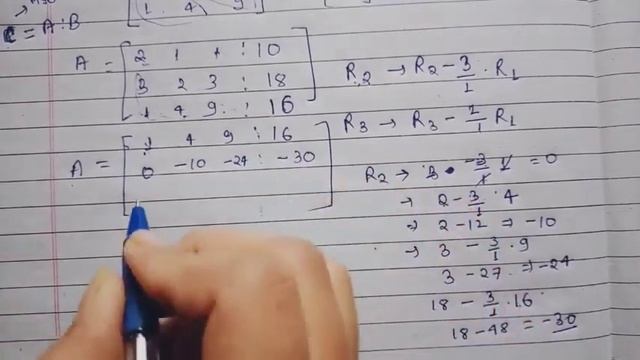 1 4 9
C = A : B
A = [ 2 1 1 : 10
3 2 3 : 18
1 4 9 : 16 ]
R2 → R2 - 3/1 . R1
R3 → R3 - 2/1 R1
A = [ 1 4 9 : 16
0 -10 -24 : -30 ]
R2 → 3 - 3/1 . 1 = 0
→ 2 - 3/1 . 4
⇒ 2 - 12 ⇒ -10
→ 3 - 3/1 . 9
3 - 27 . ⇒ -24
18 - 3/1 . 16 .
18 - 48 = -30